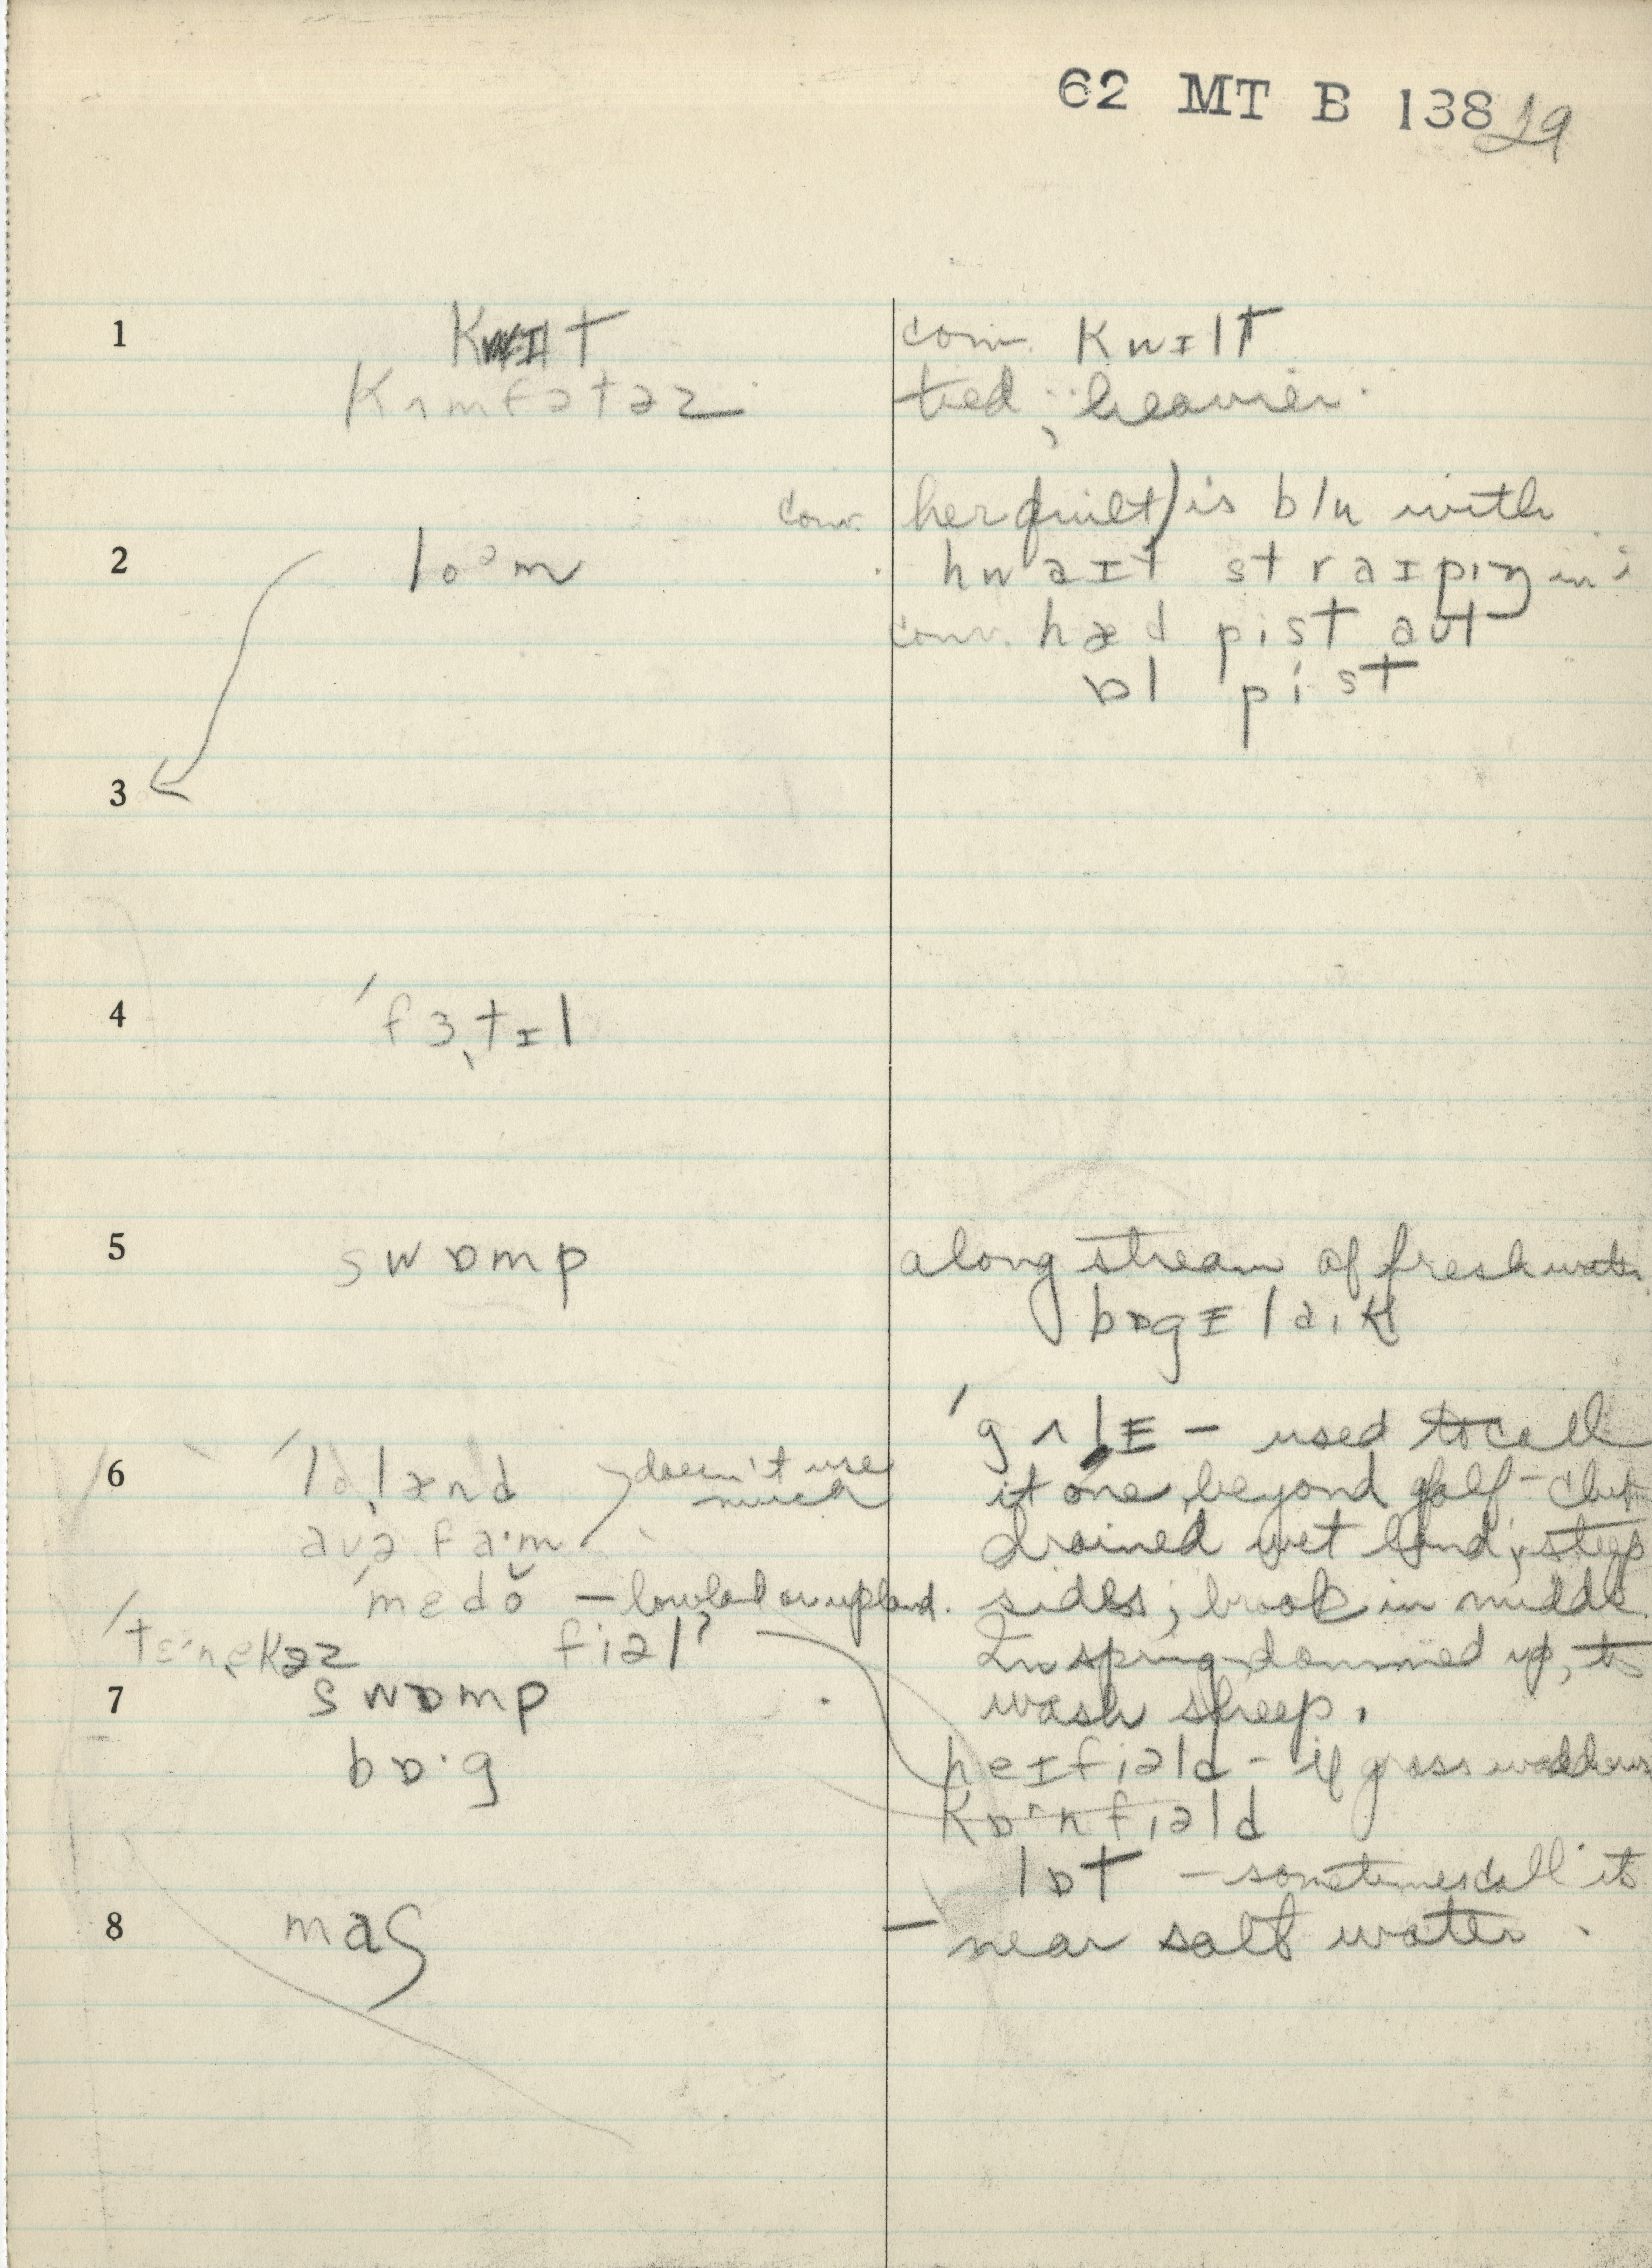 62 MT B 138 29
1 kwɪlt conv. kwɪlt
kʌmfətəz tied; heavier.
conv. her quilt) is blu with
2 loᵊm hwaɪt straɪpɪŋ in i
conv. hæd pist aʊt
ɒl pist
3
4 ˈfɜˌtɪl
5 swɒmp along stream of fresh water
bɒgɪ
ˈgʌlɪ – used to call
6 doesn't use much it one beyond golf-club
drained wet land; steep
ˈmedŏ – lowland or upland. sides; brook in middle
fiəl? In spring dammed up, to
7 swɒmp wash sheep.
bɒ·g heɪfiəld – if grass
kɒ·nfiəld
lɒt – sometimes call it
8 maʃ – near salt water.